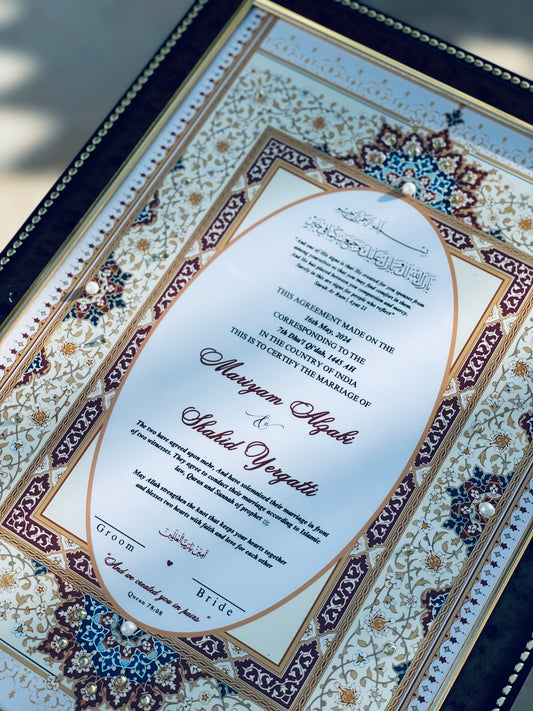 بسم الله الرحمن الرحيم
"And one of His signs is that He created for you spouses from
among yourselves so that you may find comfort in them.
And He has placed between you compassion and mercy.
Surely in this are signs for people who reflect"
Surah Ar Rum ( Ayat 21
THIS AGREEMENT MADE ON THE
16th May, 2024
CORRESPONDING TO THE
7th Dhu'l Qi'dah, 1445 AH
IN THE COUNTRY OF INDIA
THIS IS TO CERTIFY THE MARRIAGE OF
Mariyam Alqabi
&
Shahid Yergatti
The two have agreed upon mehr, And have solemnized their marriage in front
of two witnesses. They agree to conduct their marriage according to Islamic
law, Quran and Sunnah of prophet ﷺ
May Allah strengthen the knot that keeps your hearts together
and blesses two hearts with faith and love for each other
Groom
Bride
"And we created you in pairs"
Quran 78:08